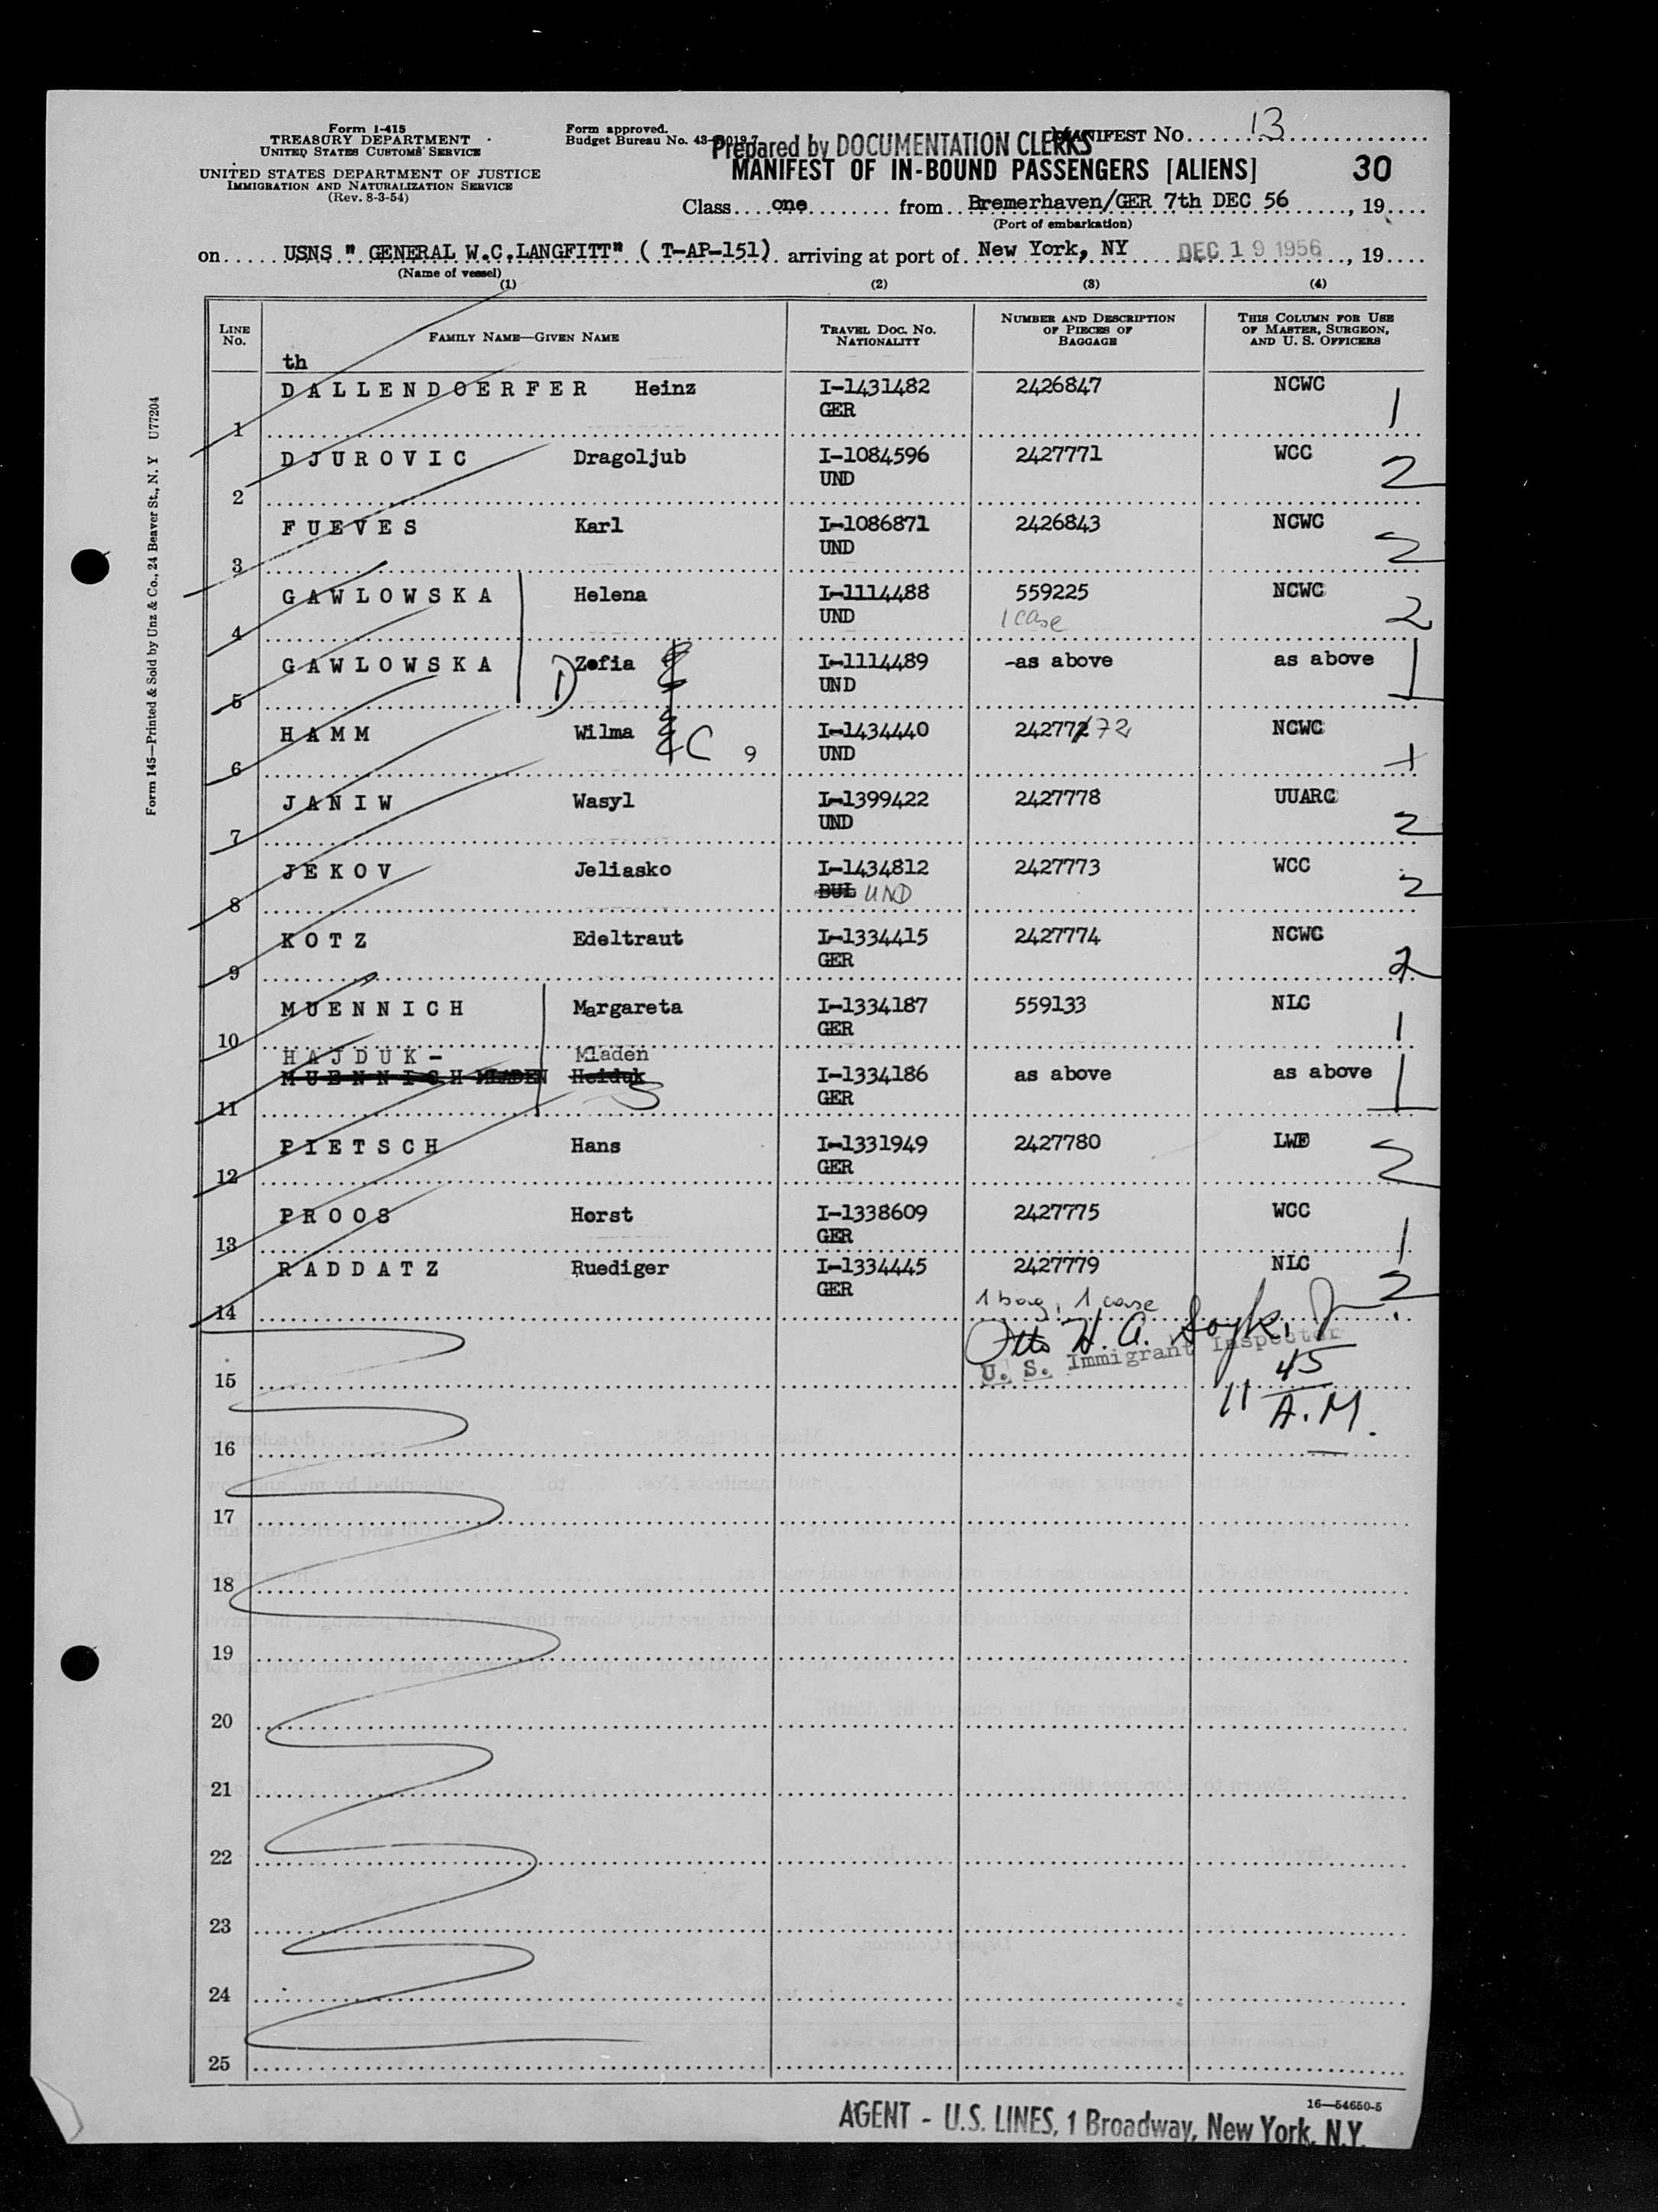 Form I-415
TREASURY DEPARTMENT
UNITED STATES CUSTOMS SERVICE
UNITED STATES DEPARTMENT OF JUSTICE
IMMIGRATION AND NATURALIZATION SERVICE
(Rev. 8-3-54)
Form approved.
Budget Bureau No. 43-R019.7
Prepared by DOCUMENTATION CLERKS
MANIFEST No. 13
MANIFEST OF IN-BOUND PASSENGERS [ALIENS] 30
Class one from Bremerhaven/GER 7th DEC 56, 19
(Port of embarkation)
on USNS " GENERAL W.C.LANGFITT" ( T-AP-151) arriving at port of New York, NY DEC 19 1956, 19
(Name of vessel)
(1) (2) (3) (4)
LINE No. FAMILY NAME—GIVEN NAME TRAVEL DOC. NO. NATIONALITY NUMBER AND DESCRIPTION OF PIECES OF BAGGAGE THIS COLUMN FOR USE OF MASTER, SURGEON, AND U. S. OFFICERS
th
DALLENDOERFER Heinz I-1431482 2426847 NCWC
1 GER 1
DJUROVIC Dragoljub I-1084596 2427771 WCC
2 UND 2
FUEVES Karl I-1086871 2426843 NCWC
3 UND 2
GAWLOWSKA Helena I-1114488 559225 NCWC
4 UND 1 case 2
GAWLOWSKA D Zofia I-1114489 -as above as above
5 UND 1
HAMM Wilma I-1434440 242777 72 NCWC
6 C 9 UND 1
JANIW Wasyl I-1399422 2427778 UUARC
7 UND 2
JEKOV Jeliasko I-1434812 2427773 WCC
8 BUL UND 2
KOTZ Edeltraut I-1334415 2427774 NCWC
9 GER 2
MUENNICH Margareta I-1334187 559133 NLC
10 GER 1
HAJDUK- Mladen
MUENNICH MLADEN Heiduk I-1334186 as above as above
11 GER 1
PIETSCH Hans I-1331949 2427780 LWF
12 GER 2
PROOS Horst I-1338609 2427775 WCC
13 GER 1
RADDATZ Ruediger I-1334445 2427779 NLC
14 GER 1 bag, 1 case 2
Otto H. A.
U. S. Immigrant Inspector
15 11 45
A.M.
16
17
18
19
20
21
22
23
24
25
16—54650-5
AGENT - U.S. LINES, 1 Broadway, New York, N.Y.
Form 145—Printed & Sold by Unz & Co., 24 Beaver St., N. Y U77204